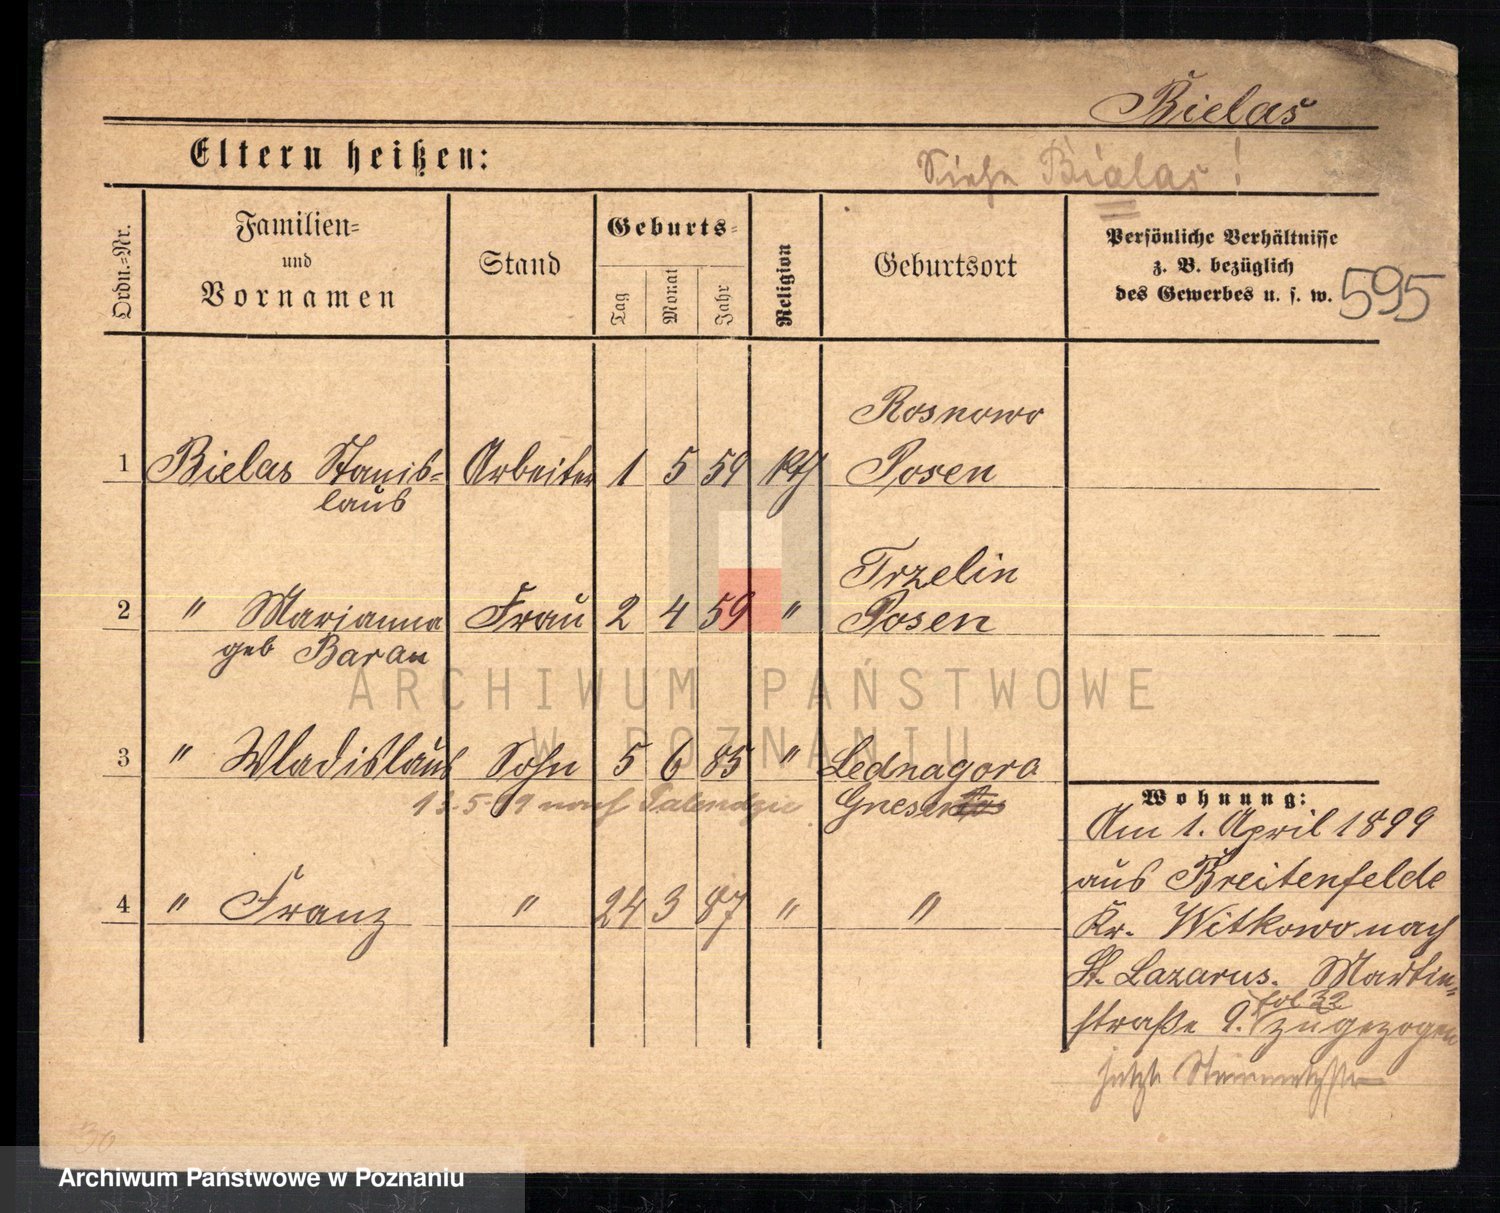 Bielas
Eltern heißen:
Siehe Bialas!
Ordn.-Nr.
Familien-
und
Vornamen
Stand
Geburts-
Tag
Monat
Jahr
Religion
Geburtsort
Persönliche Verhältnisse
z. B. bezüglich
des Gewerbes u. s. w.
595
Rosnowo
1 Bielas Stanis- Arbeiter 1 5 59 kth Posen
laus
Trzelin
2 " Marianna Frau 2 4 59 " Posen
geb Baran
3 " Wladislaus Sohn 5 6 85 " Lednagora
13.5. nach Palendzie Gnesen
4 " Franz " 24 3 87 " "
Wohnung:
Am 1. April 1899
aus Breitenfelde
Kr. Witkowo nach
St. Lazarus. Martin-
fol 32
straße 9. zugezogen
jetzt
30
ARCHIWUM PAŃSTWOWE
W POZNANIU
Archiwum Państwowe w Poznaniu